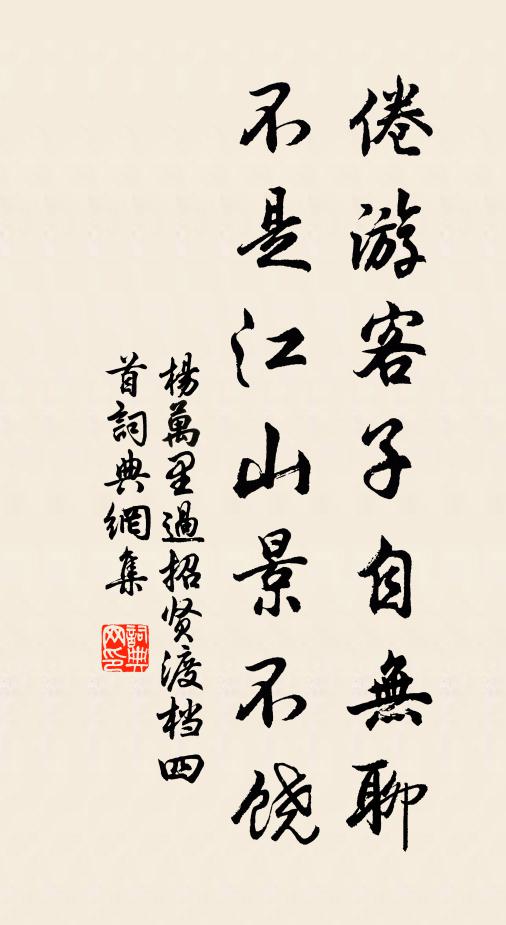 倦游客子自無聊
不是江山景不饶
楊萬里過招贤渡档四
首詞典網集
詞典
网印